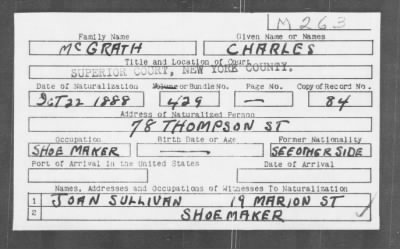 M 263
Family Name Given Name or Names
McGRATH CHARLES
Title and Location of Court
SUPERIOR COURT, NEW YORK COUNTY.
Date of Naturalization Volume or Bundle No. Page No. Copy of Record No.
OCT 22 1888 429 — 84
Address of Naturalized Person
78 THOMPSON ST
Occupation Birth Date or Age Former Nationality
SHOE MAKER — SEE OTHER SIDE
Port of Arrival in the United States Date of Arrival
Names, Addresses and Occupations of Witnesses To Naturalization
1 JOAN SULLIVAN 19 MARION ST
2 SHOEMAKER